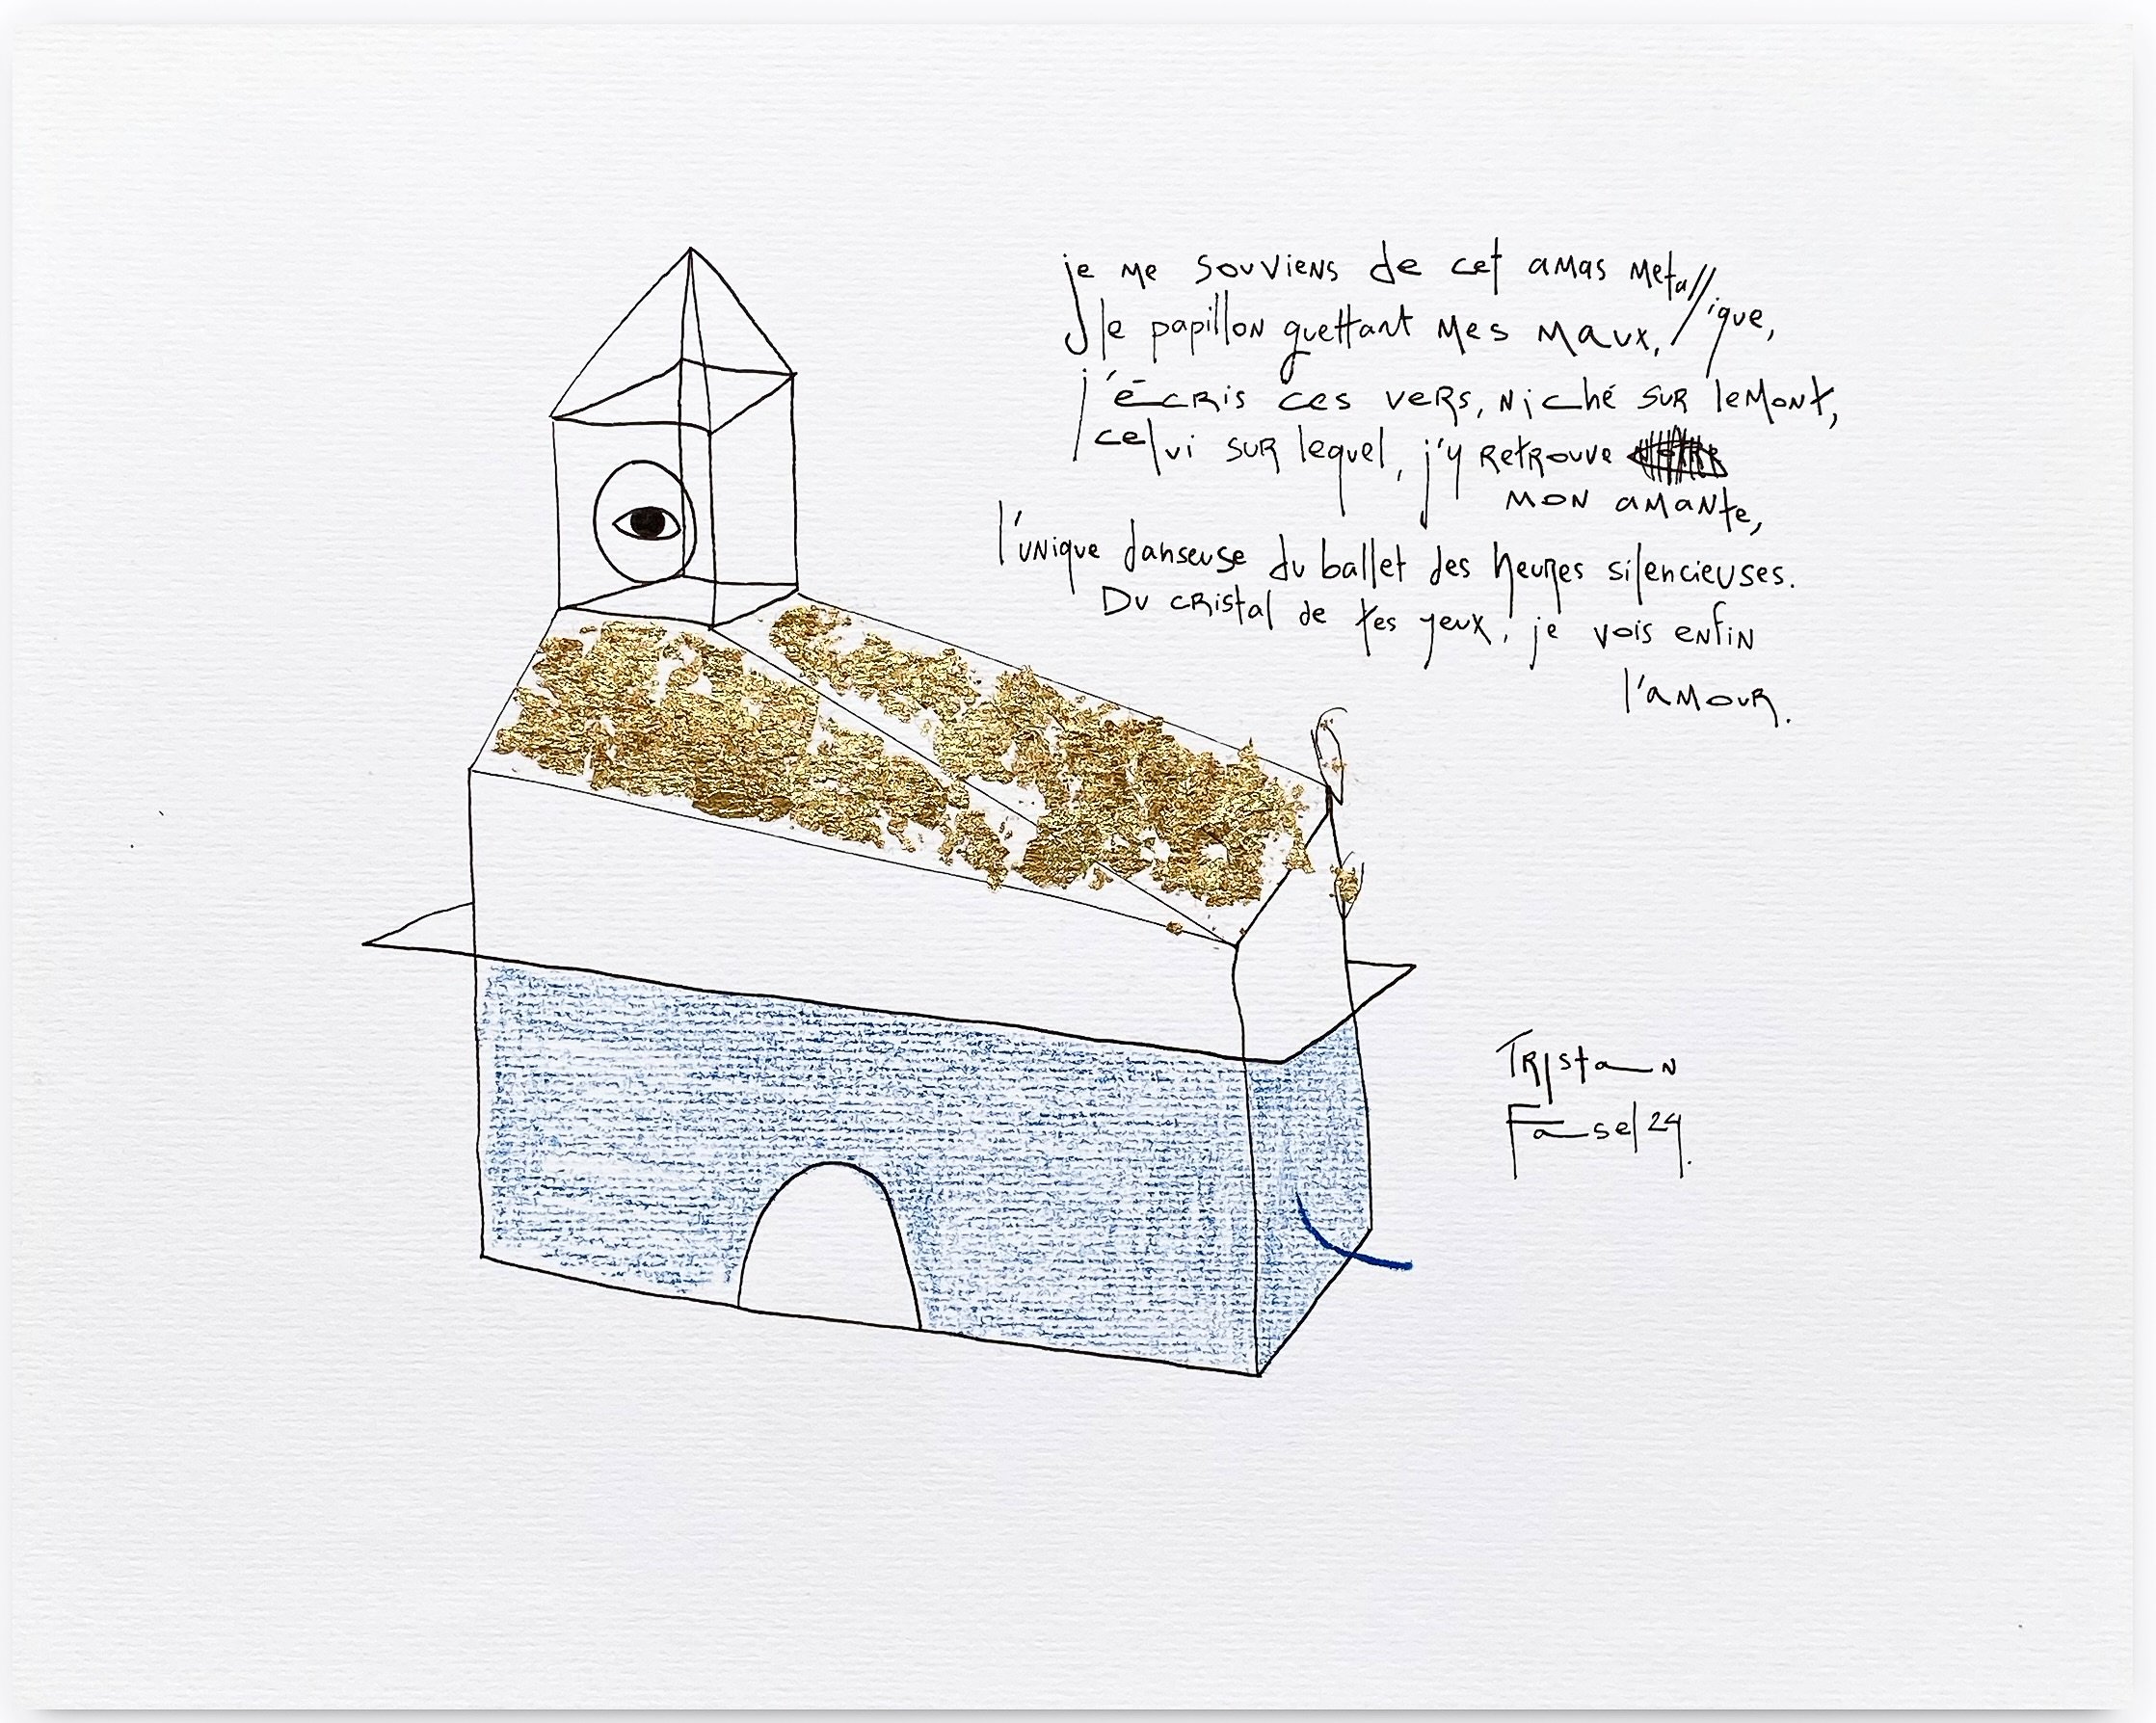 je me souviens de cet amas metallique,
le papillon guettant mes maux,
j'écris ces vers, niché sur le Mont,
celui sur lequel, j'y retrouve
mon amante,
l'unique danseuse du ballet des heures silencieuses.
Du cristal de tes yeux, je vois enfin
l'amour.
Tristan
Fasel 24.